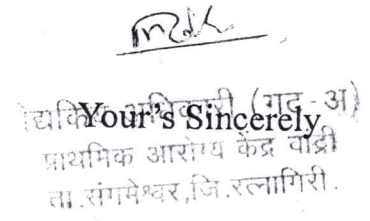 Your's Sincerely
वैद्यकिय अधिकारी (गट - अ)
प्राथमिक आरोग्य केंद्र वांद्री
ता.संगमेश्वर,जि.रत्नागिरी.